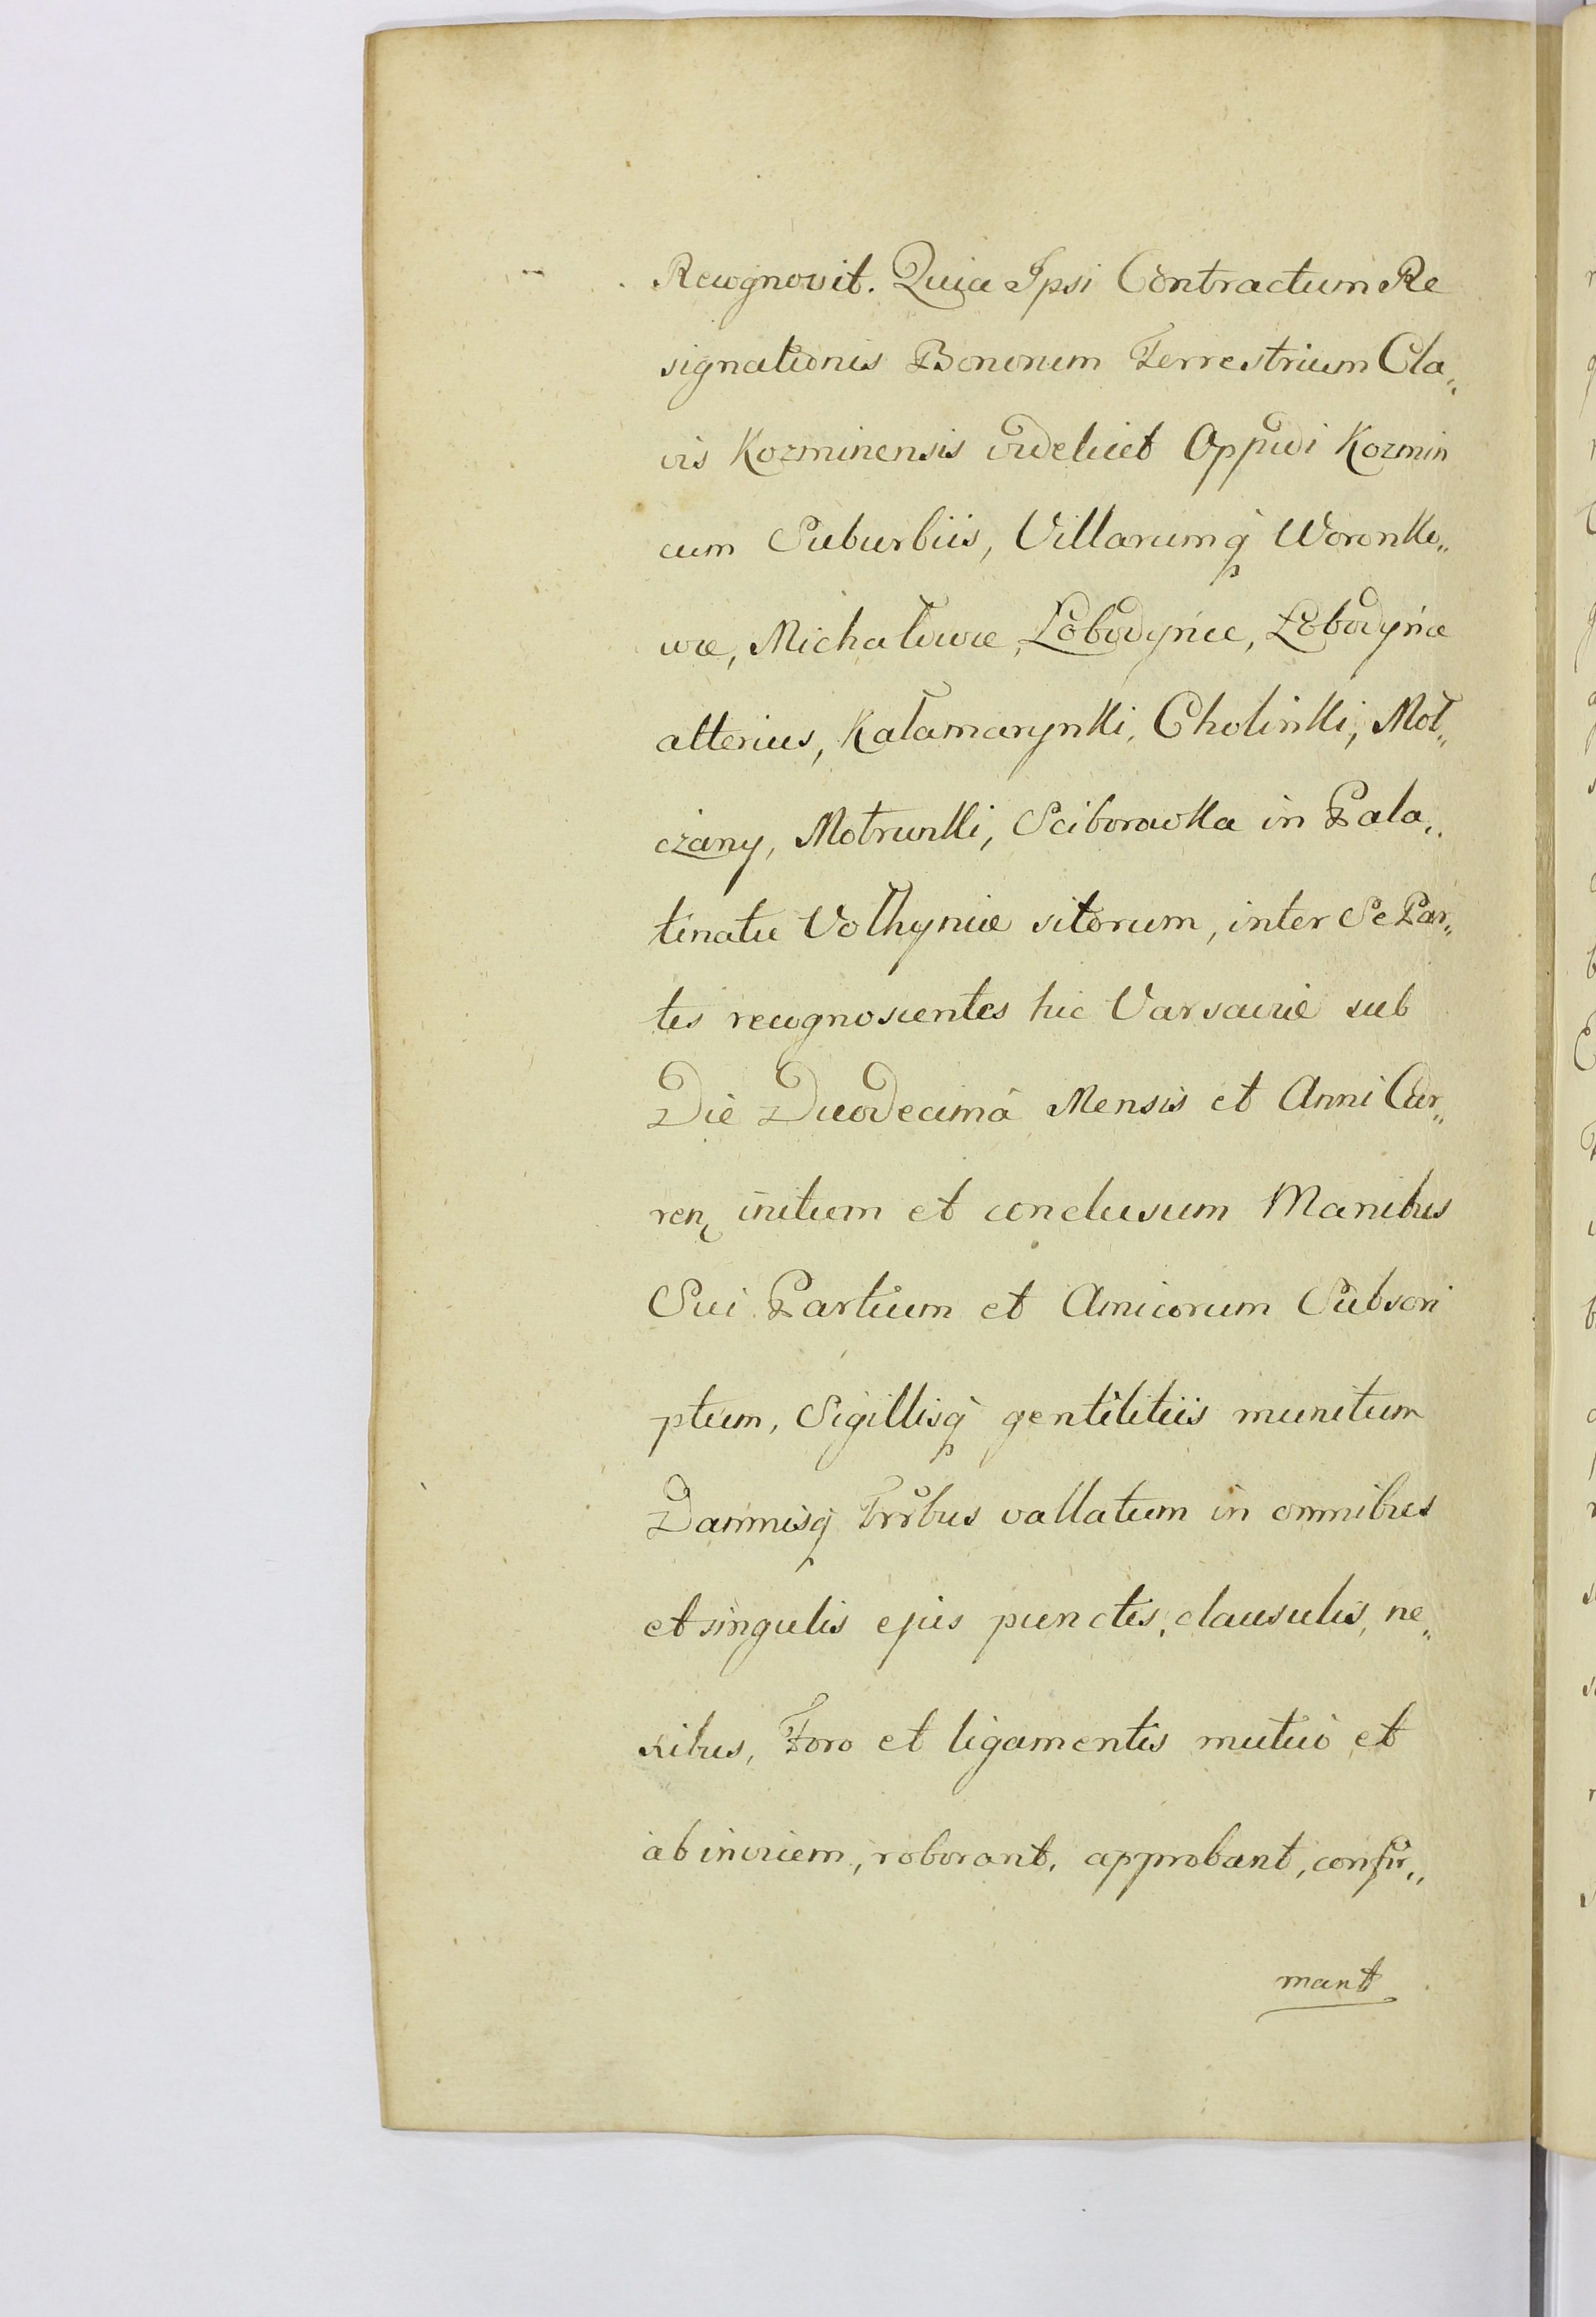 Recognovit. Quia Ipsi Contractum Re
signationis Bonorum Terrestrium Cla„
vis Kozminensis videlicet Oppidi Kozmin
cum Suburbiis, Villarumq̀ Woronko„
wce, Michałowce, Łobodyńce, Łobodyńce
alterius, Kałamarynki, Cholinki, Moł„
czany, Motrunki, Sciborowka in Pala„
tinatu Volhyniæ sitorum, inter Se Par„
tes recognoscentes hic Varsaviæ sub
Die Duodecimâ Mensis et Anni Cur„
ren initum et conclusum Manibus
Sui Partium et Amicorum Subscri
ptum, Sigillisq̀ gentilitiis munitum
Damnisq̀ Trrbus vallatum in omnibus
et singulis ejus punctis, clausulis, ne„
xibus, Foro et ligamentis mutuò et
ab invicem, roborant, approbant, confir„
mant